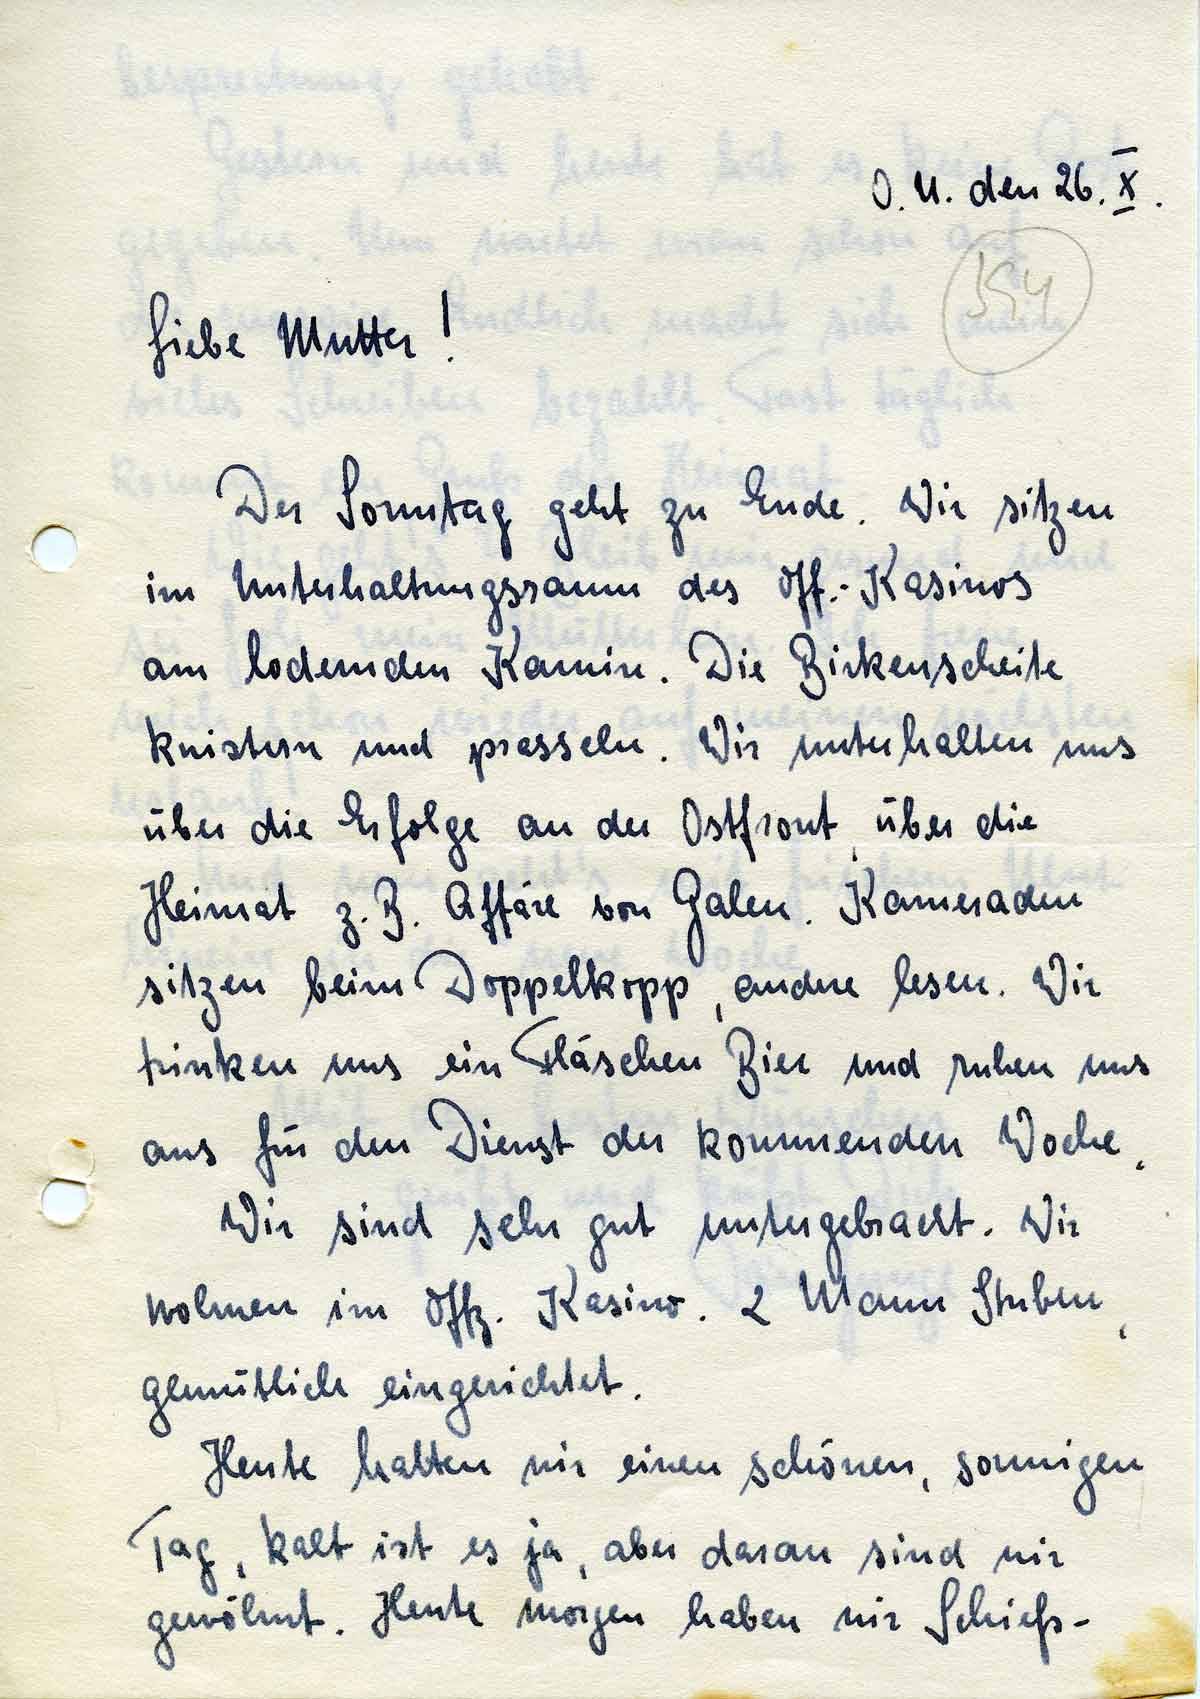 O. U. den 26. X.
Liebe Mutter!
Der Sonntag geht zu Ende. Wir sitzen
im Unterhaltungsraum des Off.-Kasinos
am lodernden Kamin. Die Birkenscheite
knistern und prasseln. Wir unterhalten uns
über die Erfolge an der Ostfront, über die
Heimat z. B. Affäre von Galen. Kameraden
sitzen beim Doppelkopp, andere lesen. Wir
trinken uns ein Fläschen Bier und ruhen uns
aus für den Dienst der kommenden Woche.
Wir sind sehr gut untergebracht. Wir
wohnen im Offz. Kasino. 2 Mann Stuben,
gemütlich eingerichtet.
Heute hatten wir einen schönen, sonnigen
Tag, kalt ist es ja, aber daran sind wir
gewöhnt. Heute morgen haben wir Schieß-